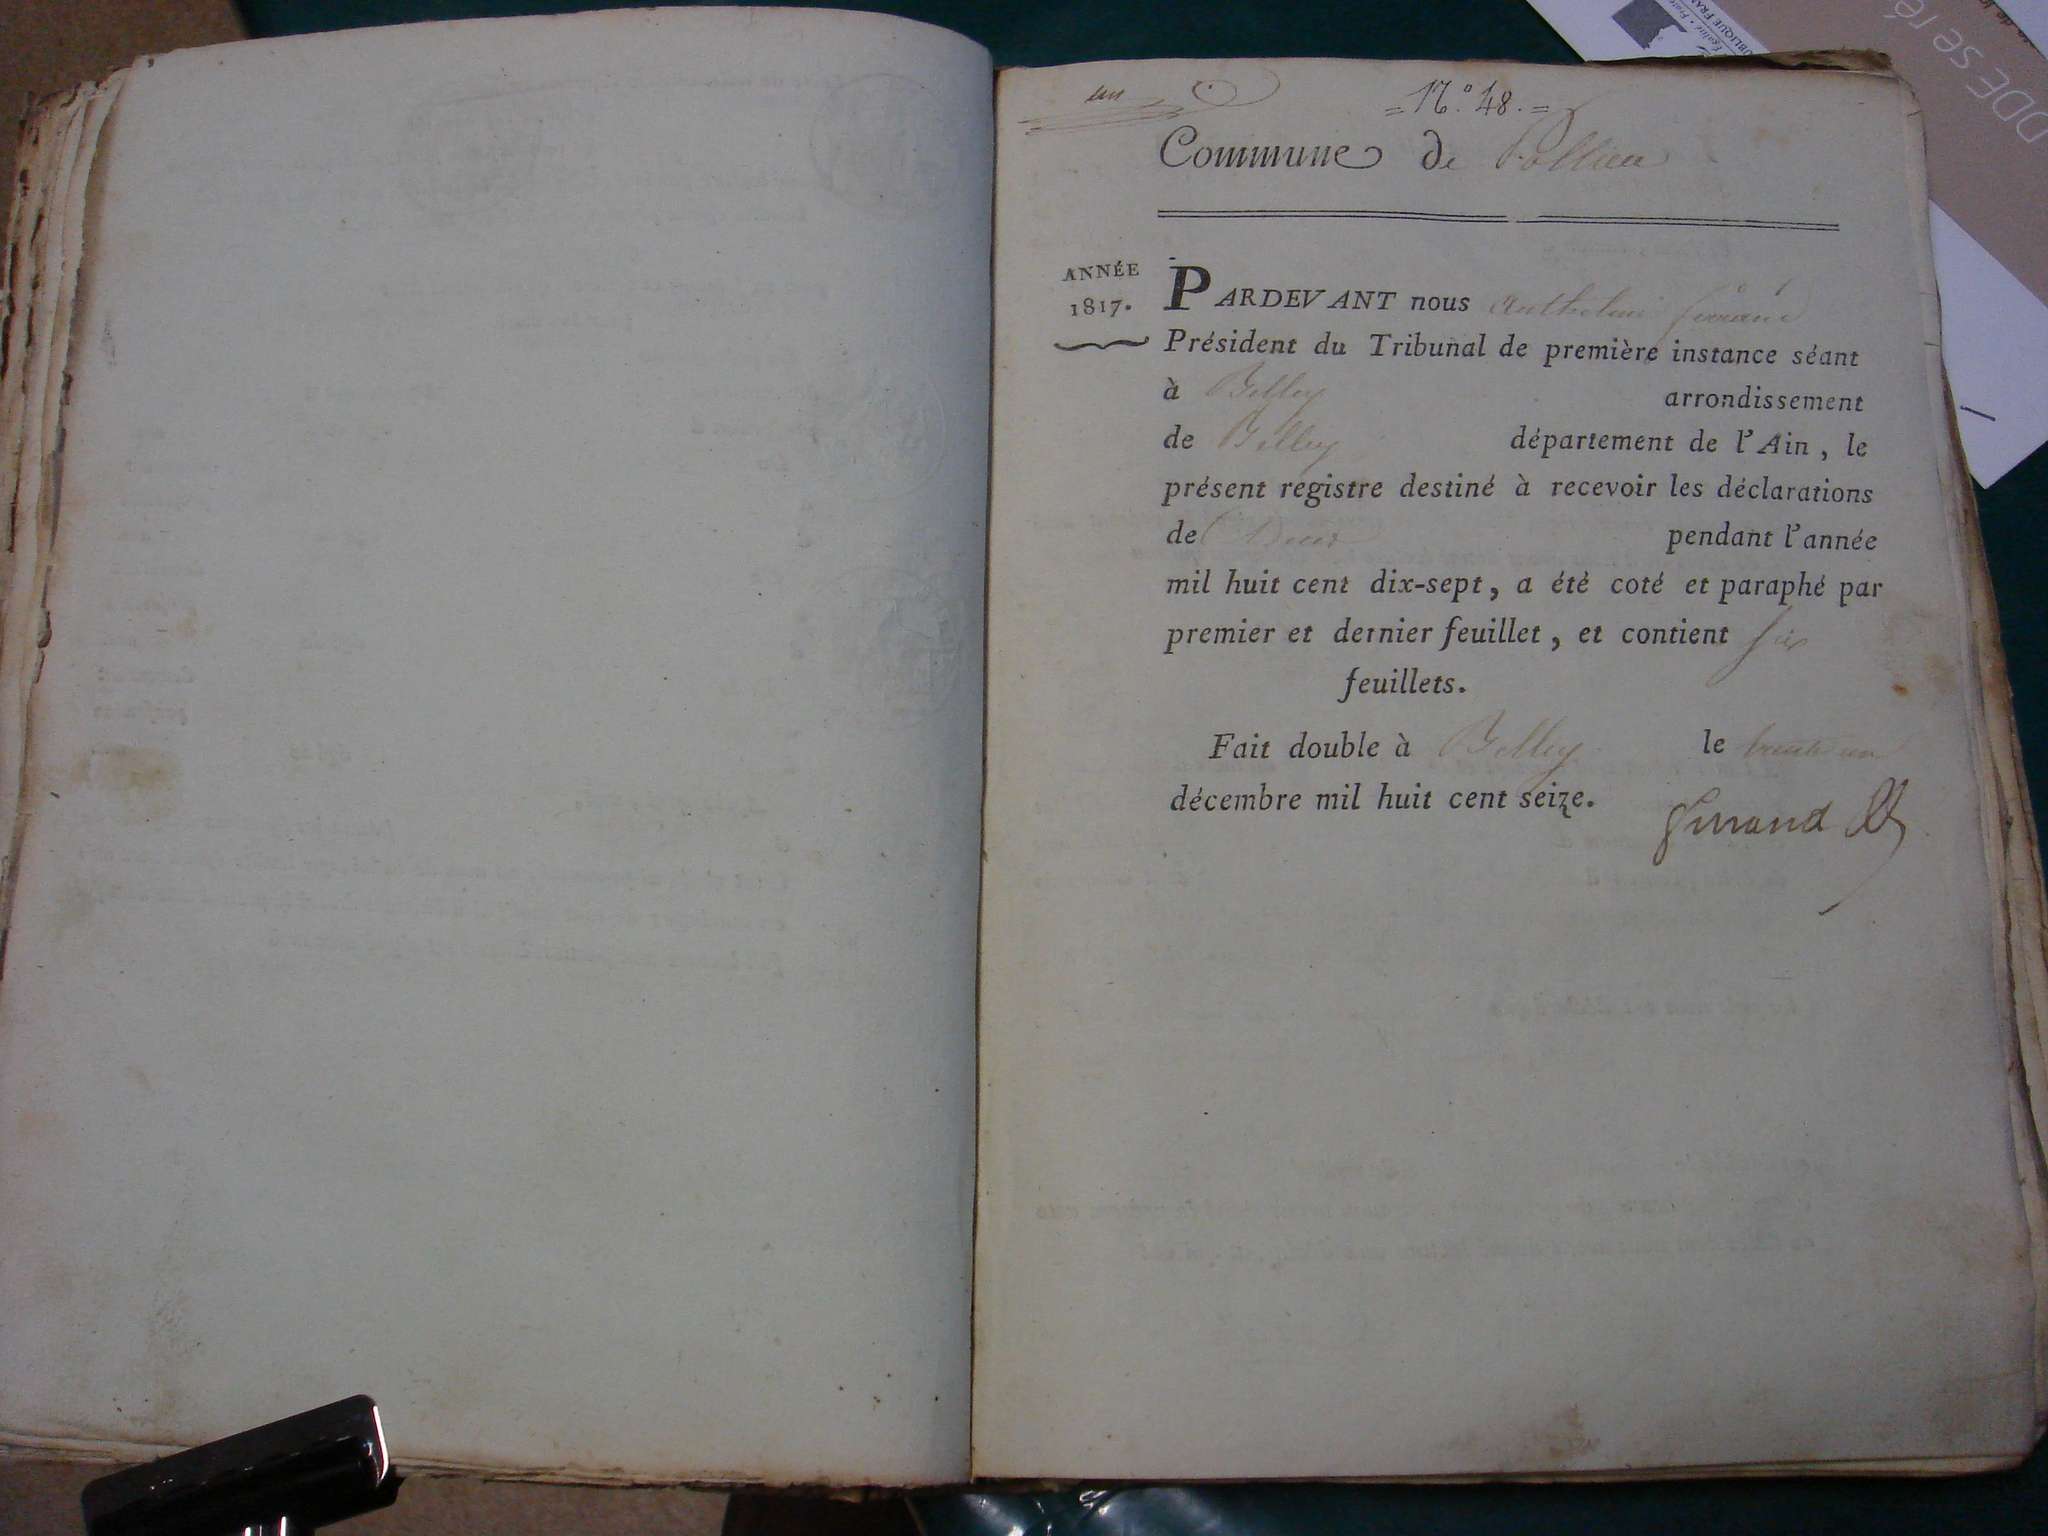 un
= N.º 48. =
Commune de Pollieu
ANNÉE
1817.
PARDEVANT nous Anthelme
Président du Tribunal de première instance séant
à Belley arrondissement
de Belley département de l'Ain, le
présent registre destiné à recevoir les déclarations
de Décès pendant l'année
mil huit cent dix-sept, a été coté et paraphé par
premier et dernier feuillet, et contient six
feuillets.
Fait double à Belley le trente un
décembre mil huit cent seize.
DDE se ré